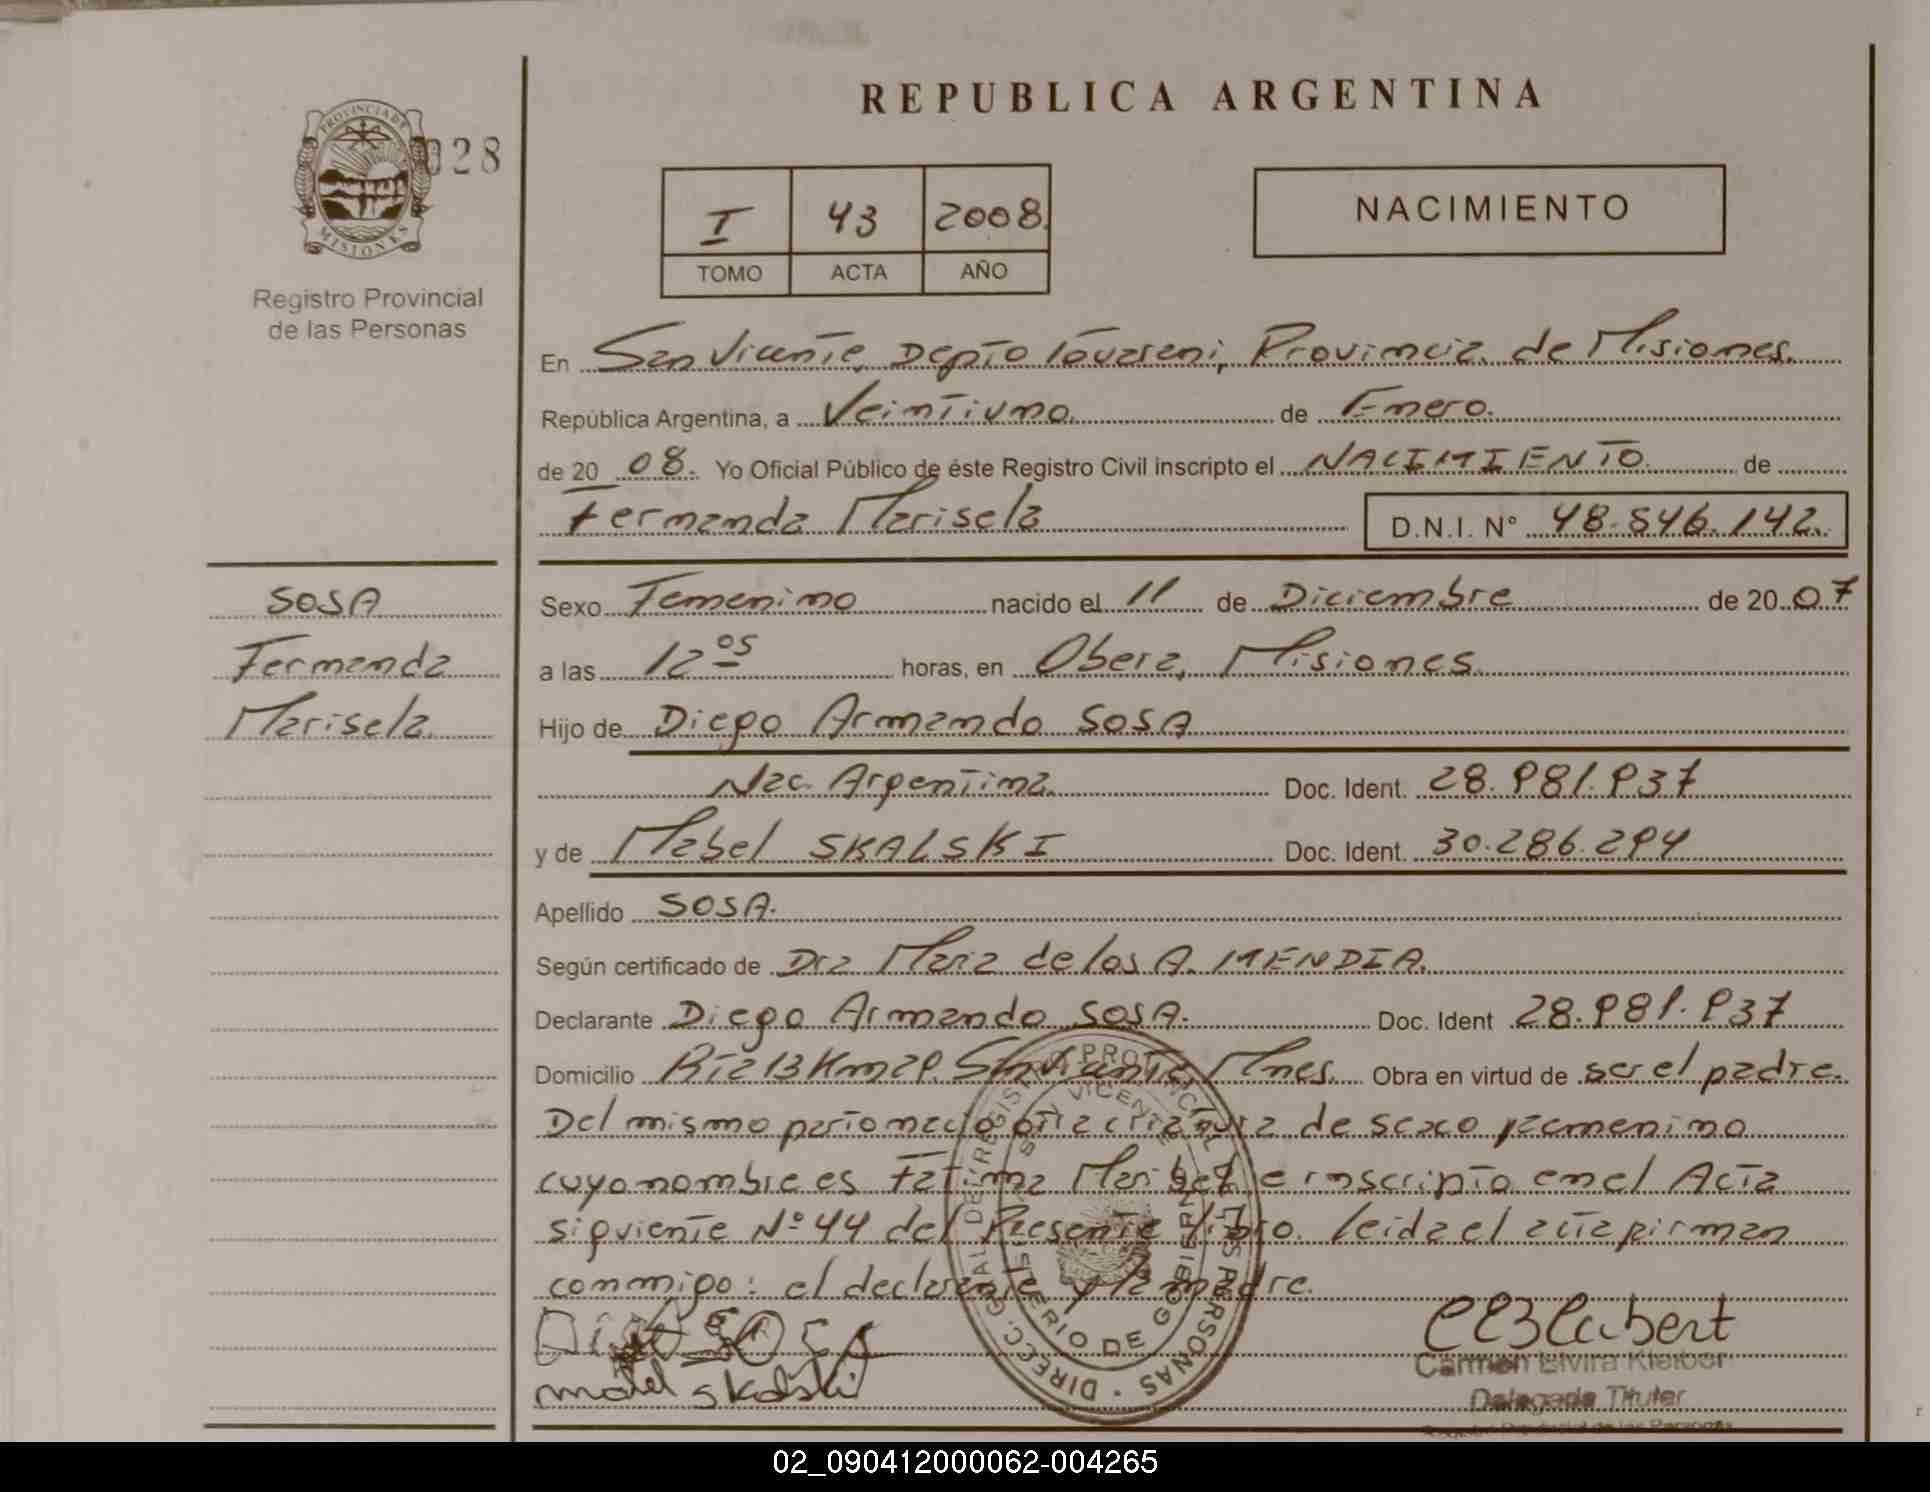 PROVINCIA DE
MISIONES
028
Registro Provincial
de las Personas
REPUBLICA ARGENTINA
I 43 2008.
TOMO ACTA AÑO
NACIMIENTO
En San Vicente, Depto Guarani, Provincia de Misiones.
República Argentina, a Veintiuno. de Enero.
de 20 08. Yo Oficial Público de éste Registro Civil inscripto el NACIMIENTO de
Fernanda Marisela D.N.I. N° 48.546.142.
SOSA
Fernanda
Marisela.
Sexo Femenino nacido el 11 de Diciembre de 20 07
a las 12 05 horas, en Obera, Misiones.
Hijo de Diego Armando SOSA
Nac. Argentina. Doc. Ident. 28.981.937
y de Mabel SKALSKI Doc. Ident. 30.286.294
Apellido SOSA.
Según certificado de Dra Maria de los A. MENDIA.
Declarante Diego Armando SOSA. Doc. Ident 28.981.937
Domicilio Rta 13 Km 29. San Vicente Mnes. Obra en virtud de ser el padre.
Del mismo parto nacio otra criatura de sexo femenino
cuyo nombre es Fatima Maribel e inscripto en el Acta
siguiente N° 44 del Presente libro. leida el acta firman
conmigo: el declarante y la madre.
SOSA
Mabel Skalski
Carmen Elvira Kleiber
Delegada Titular
Registro Provincial de las Personas
DIRECC. GRAL DEL REGISTRO PROVINCIAL DE LAS PERSONAS
SAN VICENTE
MINISTERIO DE GOBIERNO
02_090412000062-004265